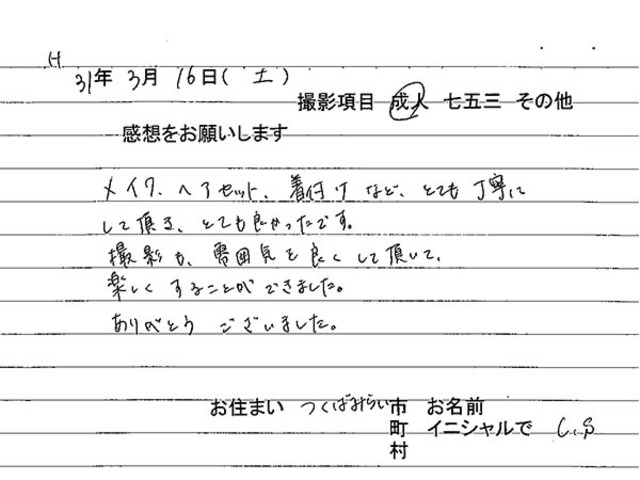 H
31年 3月 16日( 土 )
撮影項目 成人 七五三 その他
感想をお願いします
メイク、ヘアセット、着付けなど、とても丁寧に
して頂き、とても良かったです。
撮影も、雰囲気を良くして頂いて、
楽しくすることができました。
ありがとうございました。
お住まい つくばみらい市 お名前
町 イニシャルで C.S
村